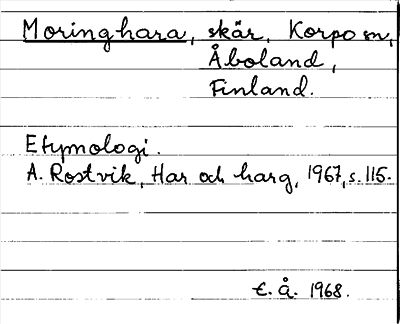 Moringhara, skär, Korpo sn,
Åboland,
Finland.
Etymologi.
A. Rostvik, Har och harg, 1967, s. 115.
E. Å. 1968.